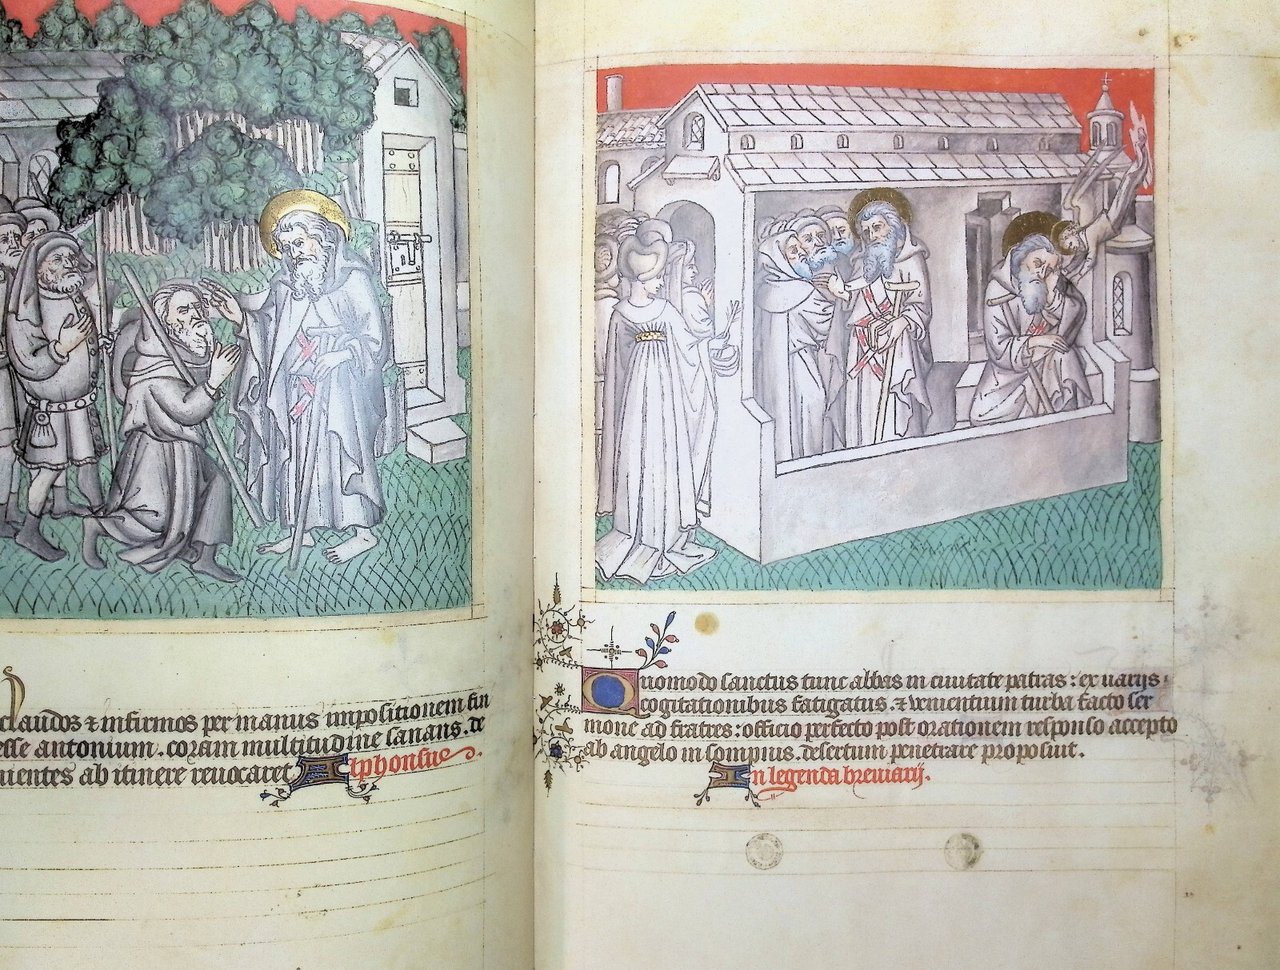 claudos & infirmos per manus impositionem fin
esse antonium. coram multitudine sanans. de
uientes ab itinere reuocaret Alphonsue.
Quomodo sanctus tunc abbas in ciuitate patras : ex uarijs
cogitationibus fatigatus. & uenientium turba facto ser
mone ad fratres : officio perfecto post orationem responso accepto
ab angelo in sompnis. desertum penetrare proposuit.
In legenda breuiarij.